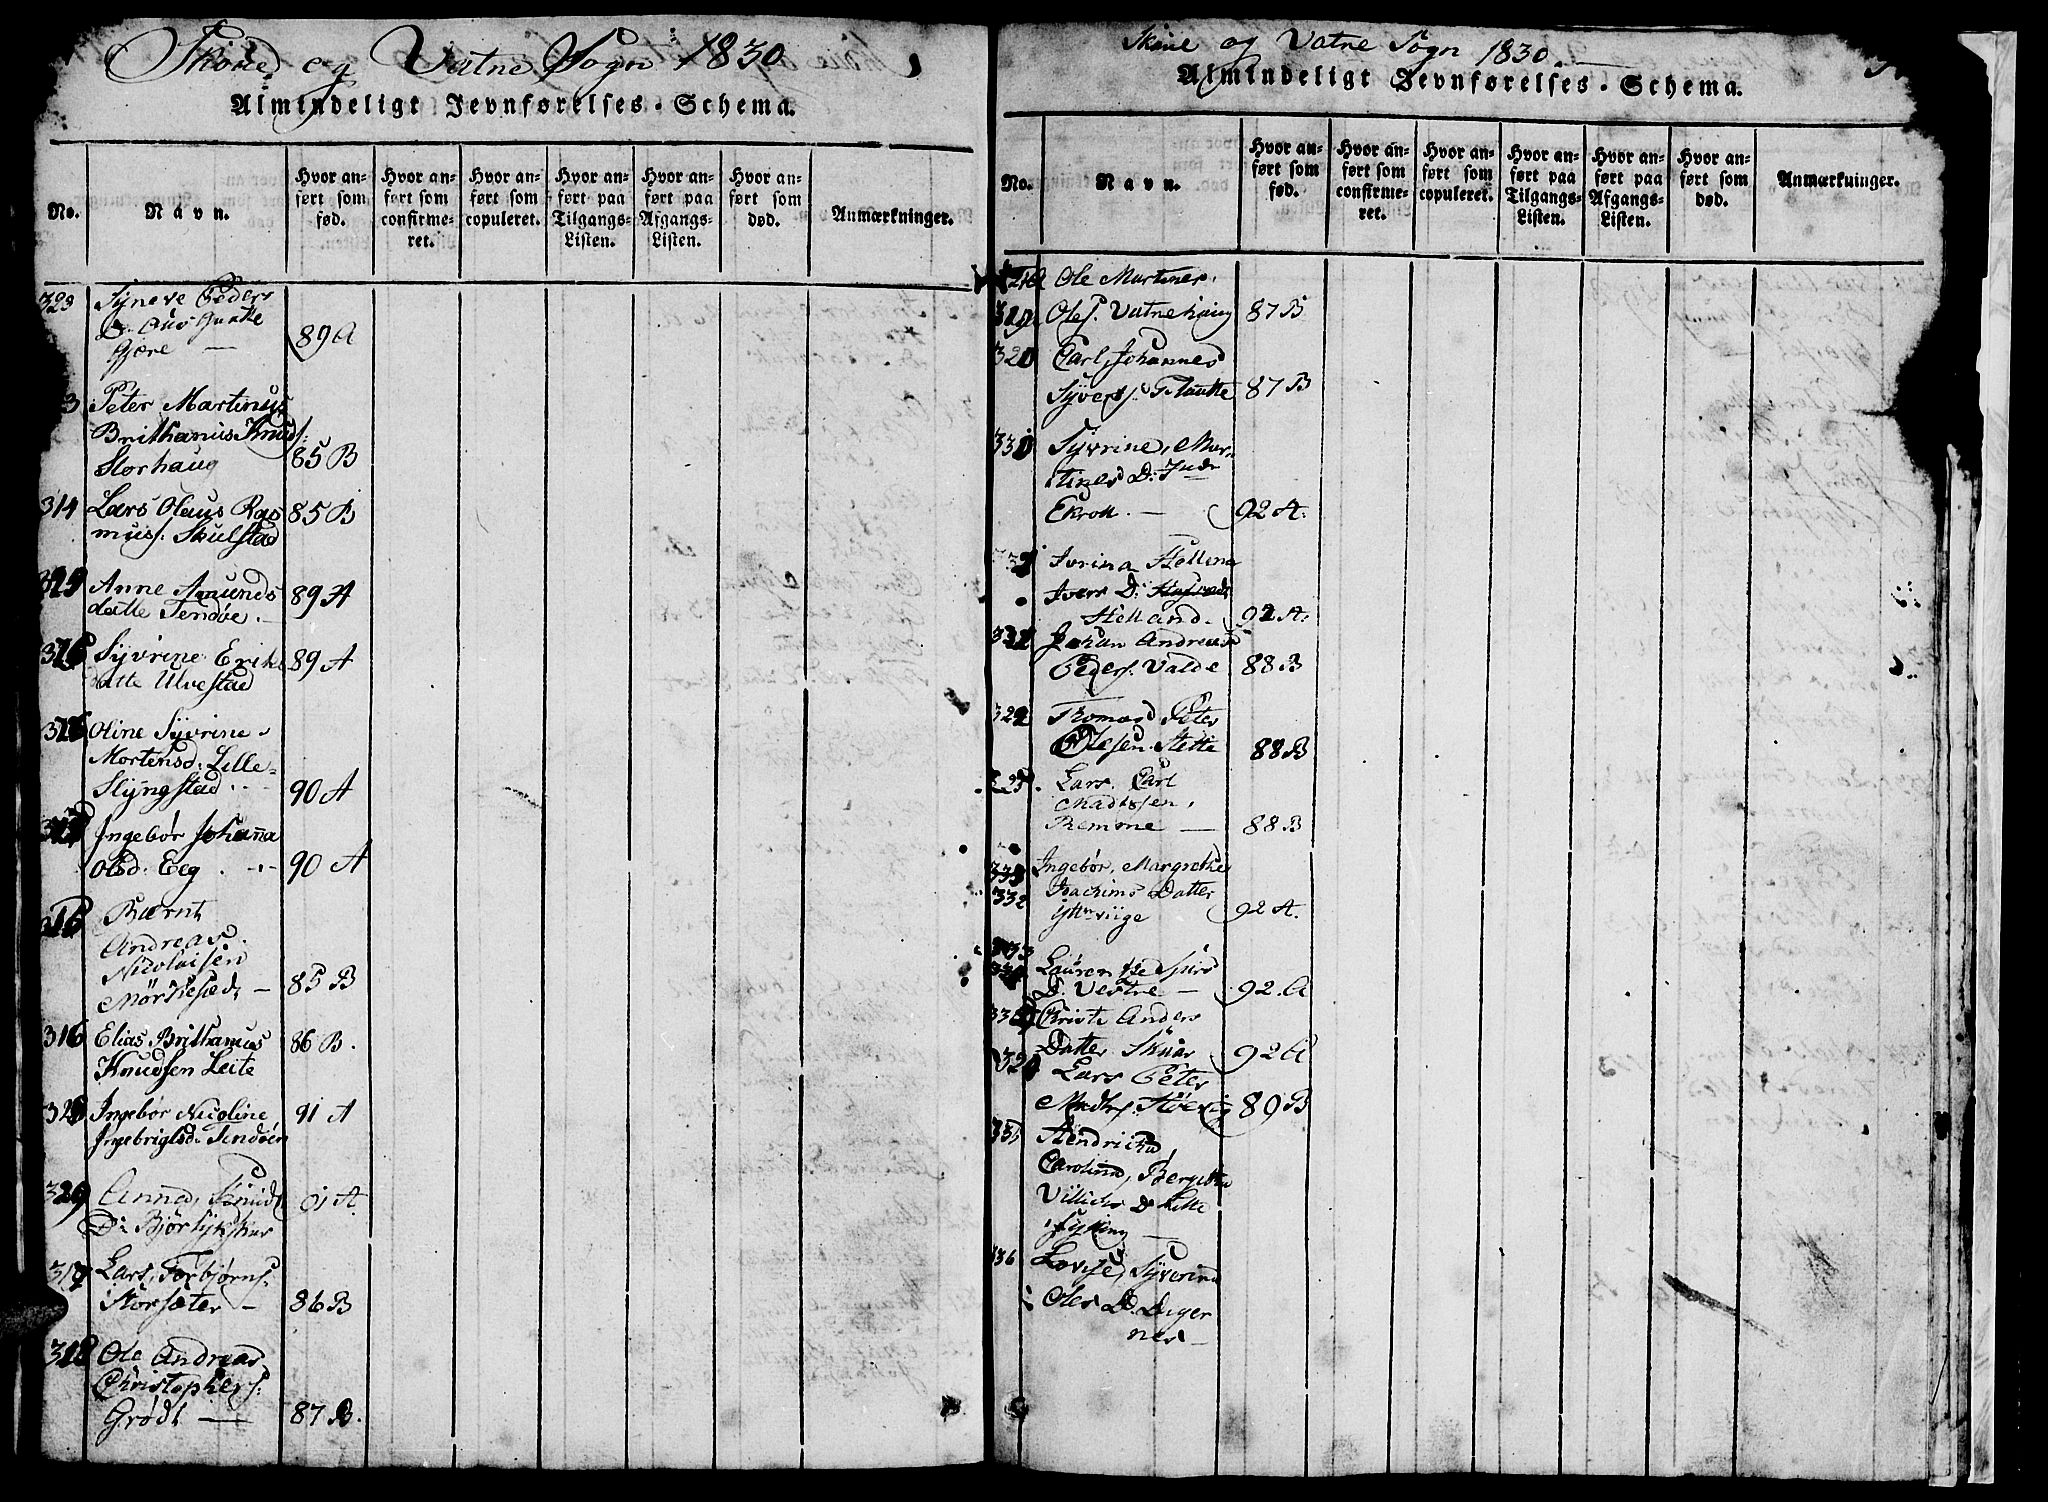 Skoue og Vatne Sogn 1830
Almindeligt Jevnførelses-Schema.
No.
Navn.
Hvor anført som fød.
Hvor anført som confirmeret.
Hvor anført som copuleret.
Hvor anført paa Tilgangs-Listen.
Hvor anført paa Afgangs-Listen.
Hvor anført som død.
Anmærkninger.
323 Syneve Peders
D.
Gjære — 89 A
Peter Martinus
Brithanus Knuds:
Storhaug 85 B
314 Lars Olaus Ras
mus: Skulstad 85 B
325 Anne Amunds
datte Tendøe. 89 A
Syvrine Eriks
datte Ulvestad 89 A
Oline Syvrine
Mortensd: Lille-
Slyngstad 90 A
Ingebør Johanna
Olsd. Eeg 90 A
Bærnt
Andreas
Nicolaisen
Mørkesæd, — 85 B
316 Elias Brithanus
Knudsen Leite 86 B.
Ingebør Nicoline
Ingebrigtsd: Tendøen 91 A
329 Anna, Knuds
D: Bjørlykshus 91 A
317 Lars, Torbjørns.
Storsæter — 86 B
318 Ole Andreas
Christophers:
Grødt — 87 B.
Skoue og Vatne Sogn 1830.
Almindeligt Jevnførelses-Schema.
No.
Navn.
Hvor anført som fød.
Hvor anført som confirmeret.
Hvor anført som copuleret.
Hvor anført paa Tilgangs-Listen.
Hvor anført paa Afgangs-Listen.
Hvor anført som død.
Anmærkninger.
Ole Martines,
319 Oles. Vatnehaug 87 B
320 Carl, Johannes
Syvers. Flautte 87 B
330 Syvrine, Mar-
tines D: Indr
Ekroll. — 92 A.
Ivrina Hellina
Ivers D:
Helland. 92 A.
Johan Andreas
Peders. Valde 88 B
322 Thomas Peter
Olesen Stette 88 B
Lars. Carl
Madssen,
Remme — 88 B
Ingebør, Margrethe
332 Joachims Datter
Yttrviige 92 A.
333
Laurentze Siurs
D. Vestre — 92. A
Christi Anders
Datter Skuar 92 A
324 Lars Peter
Madts. Støevig 89 B
335 Hendricha
Carolina, Bergitha
Villichs D Lille
Sylling —
336 Lovise, Syverina
Oles D. Digernes —